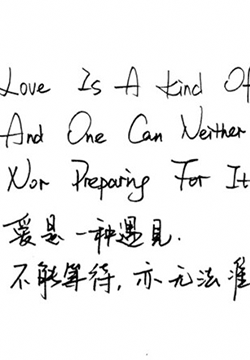 Love Is A Kind Of
And One Can Neither
Nor Preparing For It
爱是一种遇見.
不能等待,亦无法准